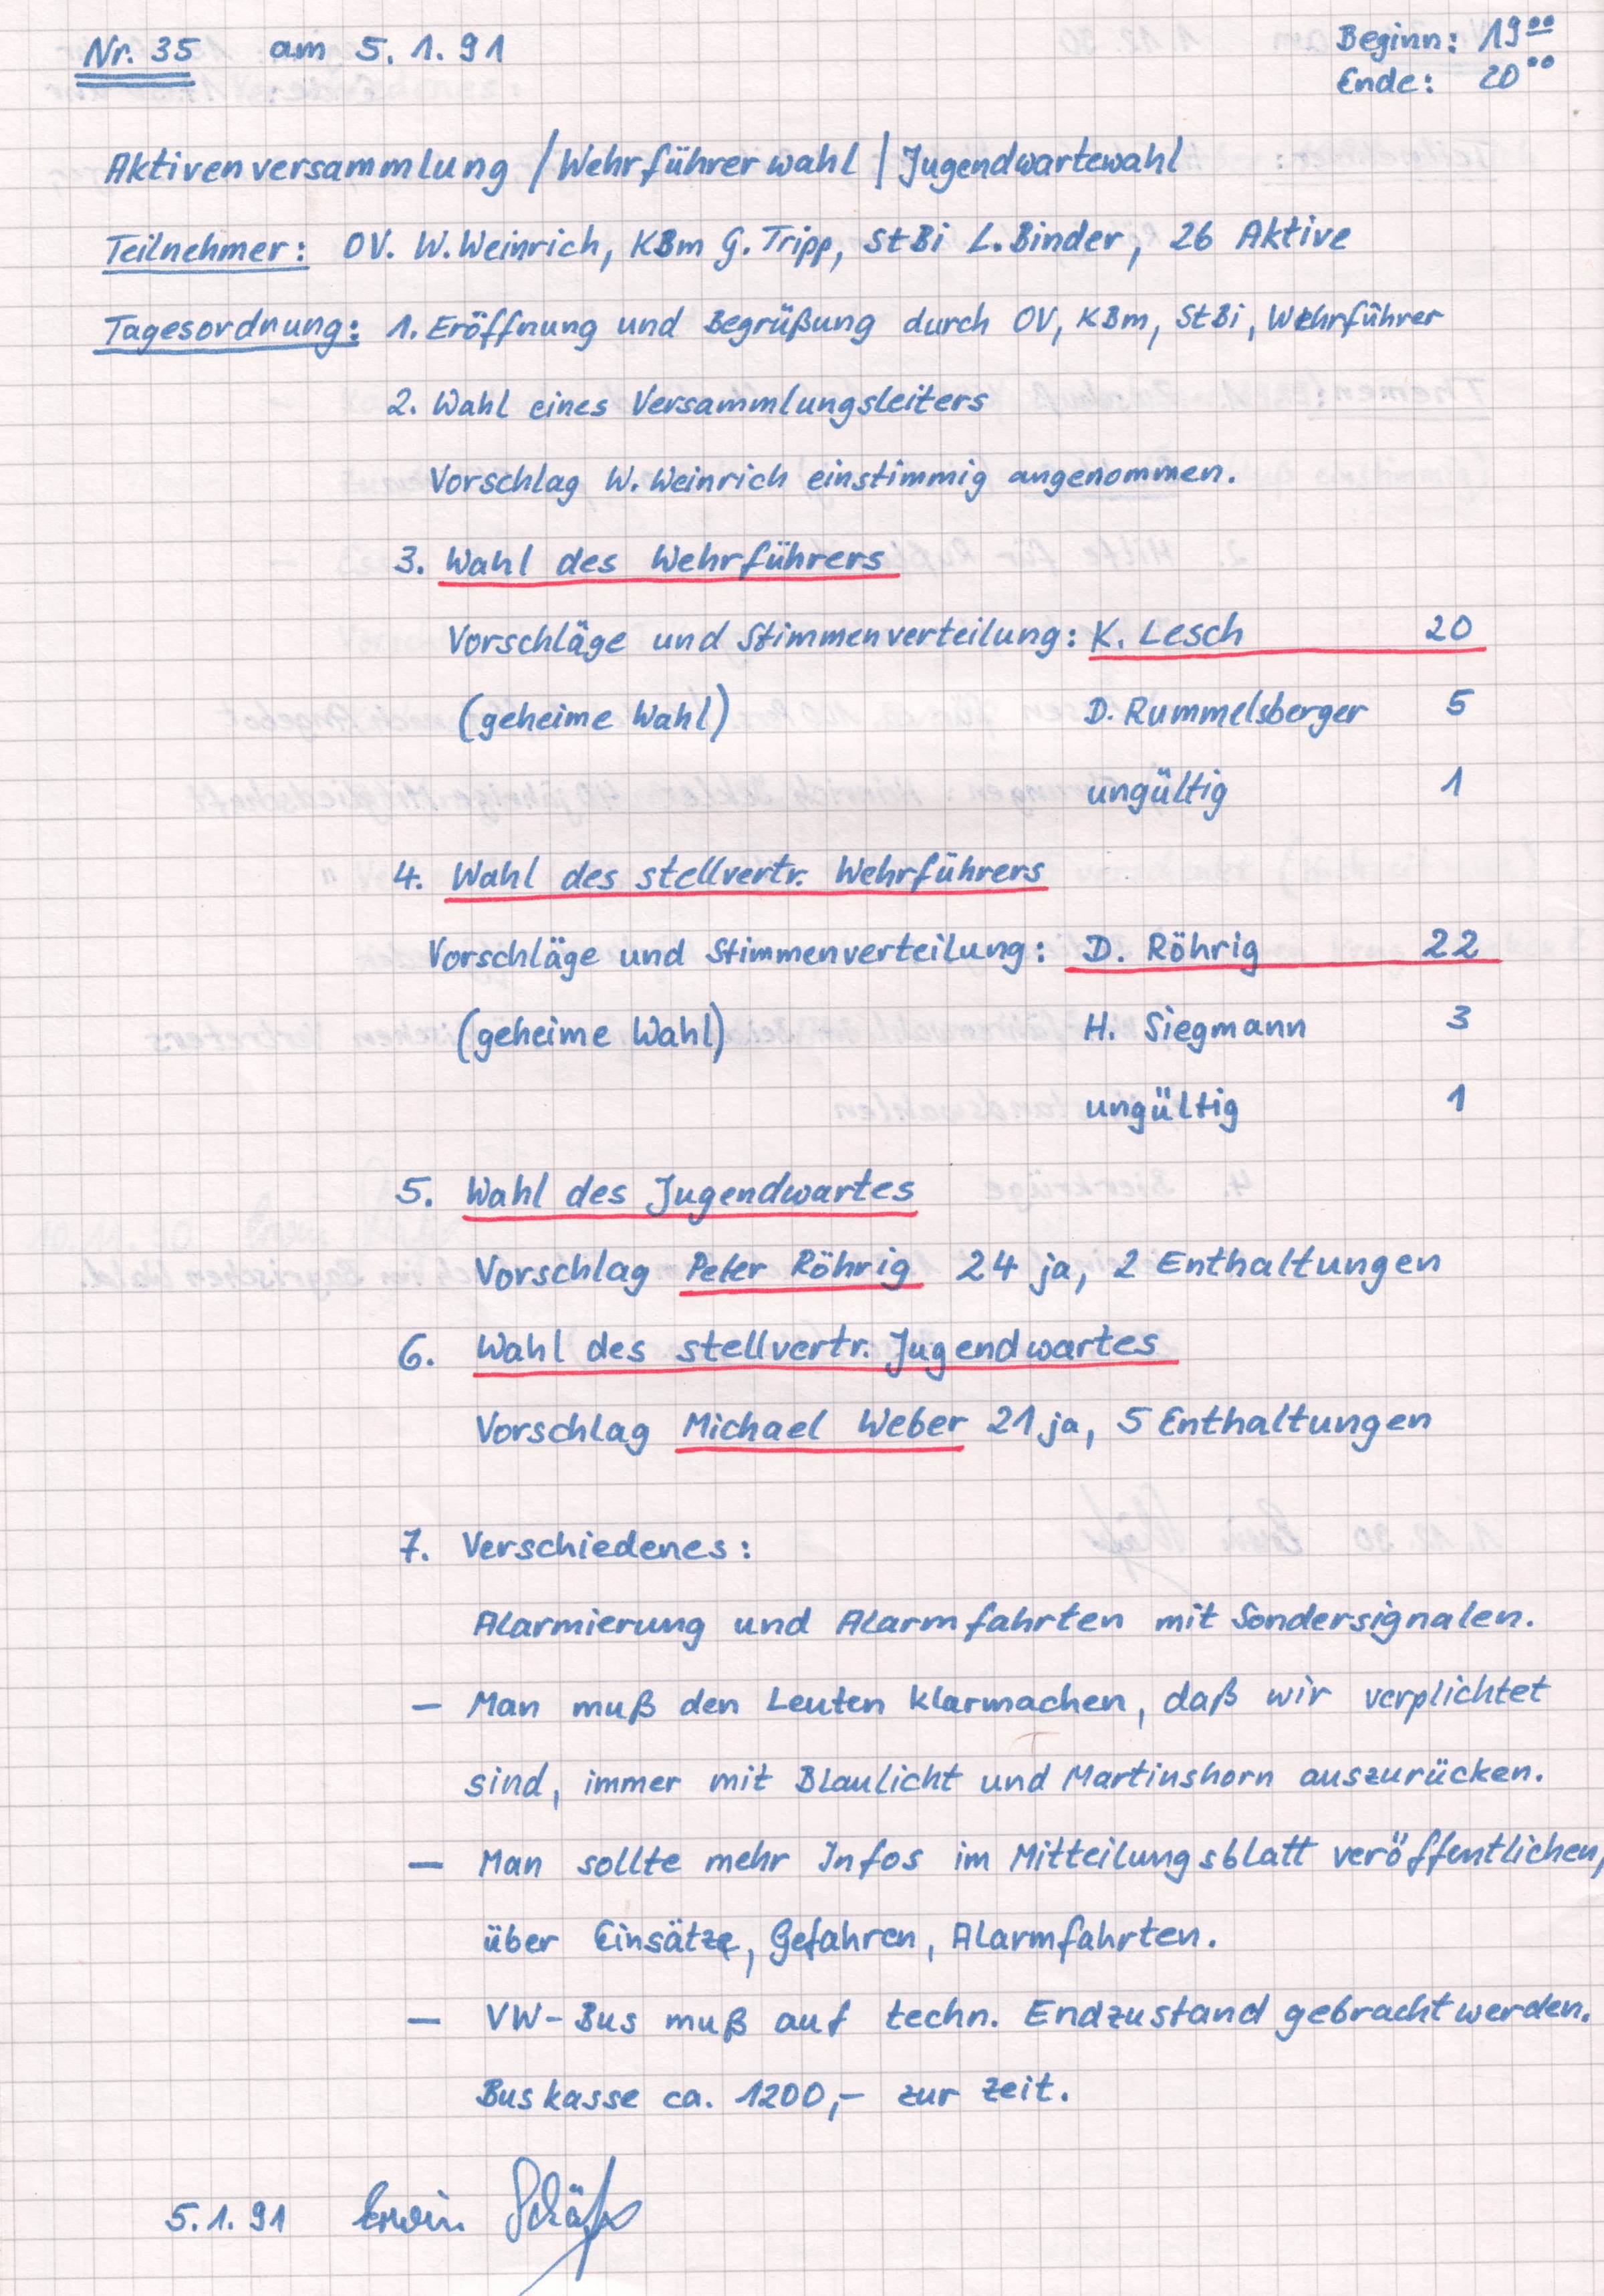 Nr. 35 am 5.1.91 Beginn: 19⁰⁰
Ende: 20⁰⁰
Aktivenversammlung / Wehrführerwahl / Jugendwartewahl
Teilnehmer: OV. W. Weinrich, KBm G. Tripp, StBi L. Binder, 26 Aktive
Tagesordnung: 1. Eröffnung und Begrüßung durch OV, KBm, StBi, Wehrführer
2. Wahl eines Versammlungsleiters
Vorschlag W. Weinrich einstimmig angenommen.
3. Wahl des Wehrführers
Vorschläge und Stimmenverteilung: K. Lesch 20
(geheime Wahl) D. Rummelsberger 5
ungültig 1
4. Wahl des stellvertr. Wehrführers
Vorschläge und Stimmenverteilung: D. Röhrig 22
(geheime Wahl) H. Siegmann 3
ungültig 1
5. Wahl des Jugendwartes
Vorschlag Peter Röhrig 24 ja, 2 Enthaltungen
6. Wahl des stellvertr. Jugendwartes
Vorschlag Michael Weber 21 ja, 5 Enthaltungen
7. Verschiedenes:
Alarmierung und Alarmfahrten mit Sondersignalen.
— Man muß den Leuten klarmachen, daß wir verplichtet
sind, immer mit Blaulicht und Martinshorn auszurücken.
— Man sollte mehr Infos im Mitteilungsblatt veröffentlichen,
über Einsätze, Gefahren, Alarmfahrten.
— VW-Bus muß auf techn. Endzustand gebracht werden.
Buskasse ca. 1200,- zur Zeit.
5.1.91 Erwin